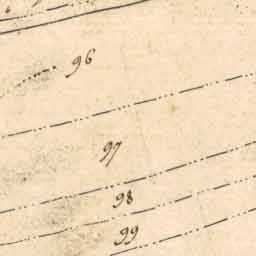 96
97
98
99